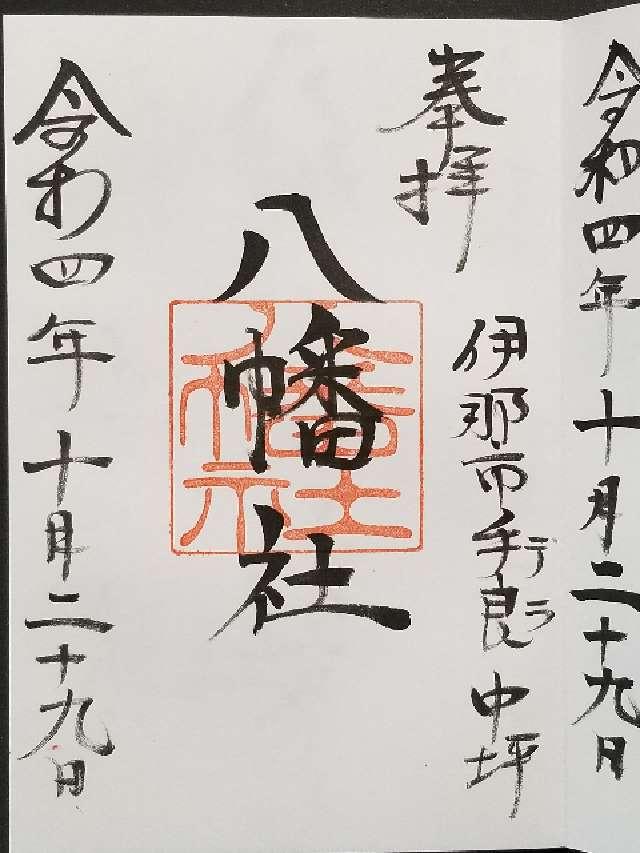 令和四年十月二十九日
奉拝
伊那市手良中坪
八幡社
令和四年十月二十九日